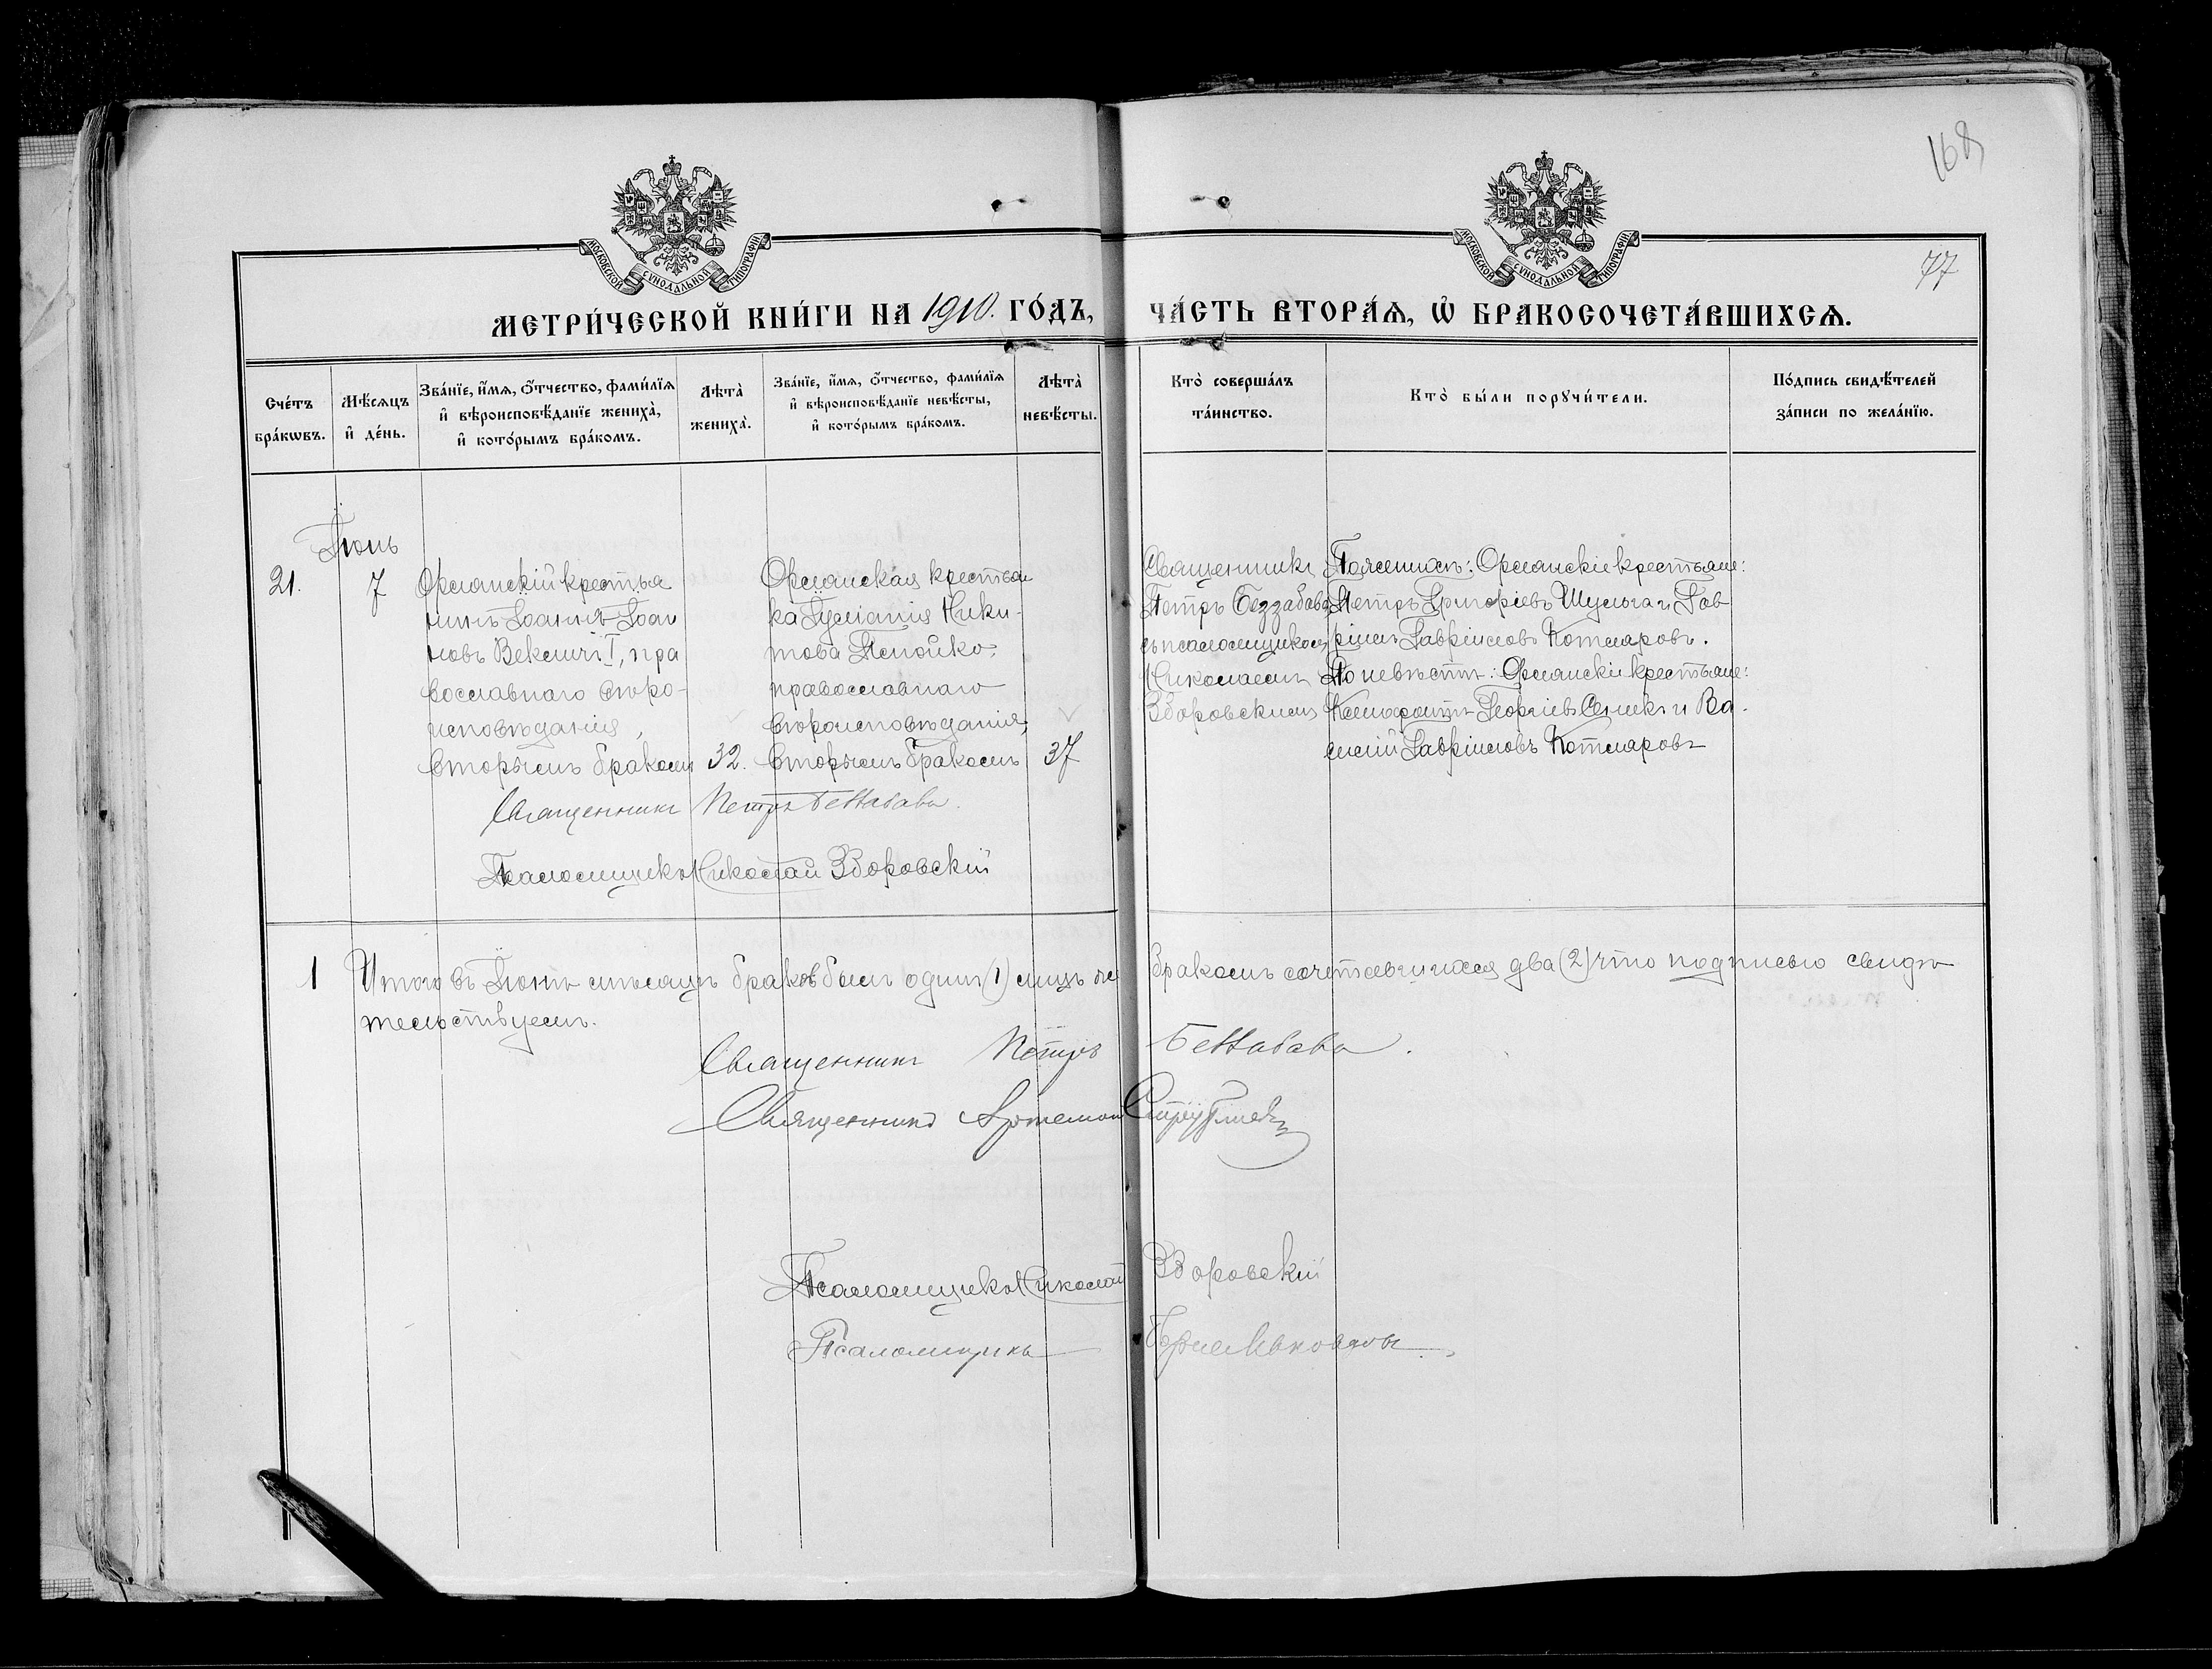 168
77
МОСКОВСКОЙ СѴНОДАЛЬНОЙ ТИПОГРАФІИ
МОСКОВСКОЙ СѴНОДАЛЬНОЙ ТИПОГРАФІИ
МЕТРИ́ЧЕСКОЙ КНИ́ГИ НА 1910. ГО́ДЪ, ЧА́СТЬ ВТОРА́Ѧ, Ѡ҆ БРАКОСОЧЕТА́ВШИХСѦ.
Сче́тъ
бра́кѡвъ.
Мѣ́сѧцъ
и҆ де́нь.
Зва́нїе, и҆́мѧ, ѻ҆́тчество, фами́лїѧ
и҆ вѣроисповѣ́данїе жениха̀,
и҆ кото́рымъ бра́комъ.
Лѣта̀
жениха̀.
Зва́нїе, и҆́мѧ, ѻ҆́тчество, фами́лїѧ
и҆ вѣроисповѣ́данїе невѣ́сты,
и҆ кото́рымъ бра́комъ.
Лѣта̀
невѣ́сты.
Кто̀ соверша́лъ
та́инство.
Кто̀ бы́ли порꙋчи́тели.
По́дпись свидѣ́телей
за́писи по жела́нїю.
Іюнь
21.
7
крестья
нинъ Іоаннъ Іоан
новъ Векличъ I, пра
вославнаго вѣро-
исповѣданія,
вторымъ бракомъ
32.
крестьян
ка Іуліанія Ники-
това
православнаго
вѣроисповѣданія,
вторымъ бракомъ
37
Священникъ
Петръ Беззабава
съ псаломщикомъ
Николаемъ
Здоровскимъ
По женихѣ: крестьяне:
Петръ Григоріевъ Шульга и Гав
ріилъ Гавріиловъ Котляровъ.
По невѣстѣ: крестьяне:
Георгіевъ и Ва
силій Гавріиловъ Котляровъ
Священникъ Петръ Беззабава.
Псаломщикъ Николай Здоровскій
1
Итого въ Іюнѣ мѣсяцѣ браковъ былъ одинъ (1) лицъ же бракомъ сочетавшихся два (2) что подписью свидѣ
тельствуемъ.
Священникъ Петръ Беззабава.
Священникъ Артемонъ
Псаломщикъ Николай Здоровскій
Псаломщикъ